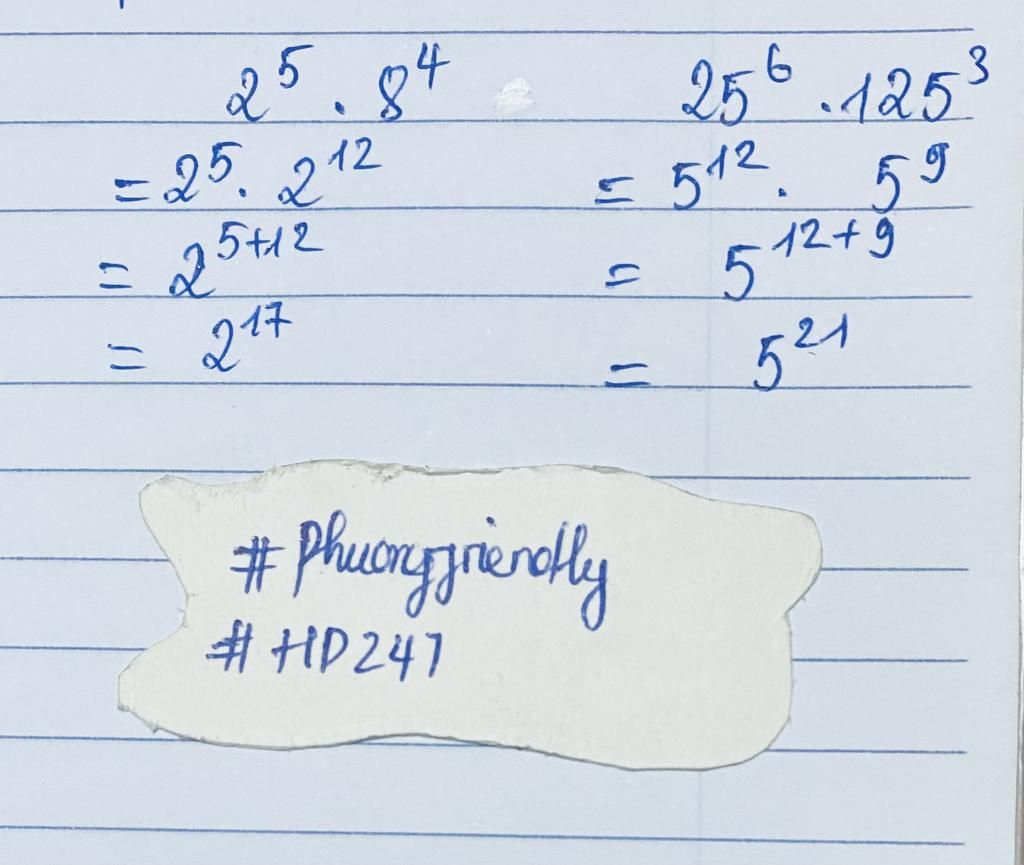 2⁵ . 8⁴
= 2⁵ . 2¹²
= 2⁵⁺¹²
= 2¹⁷
25⁶ . 125³
= 5¹² . 5⁹
= 5¹²⁺⁹
= 5²¹
# Phuongfriendly
# HD247